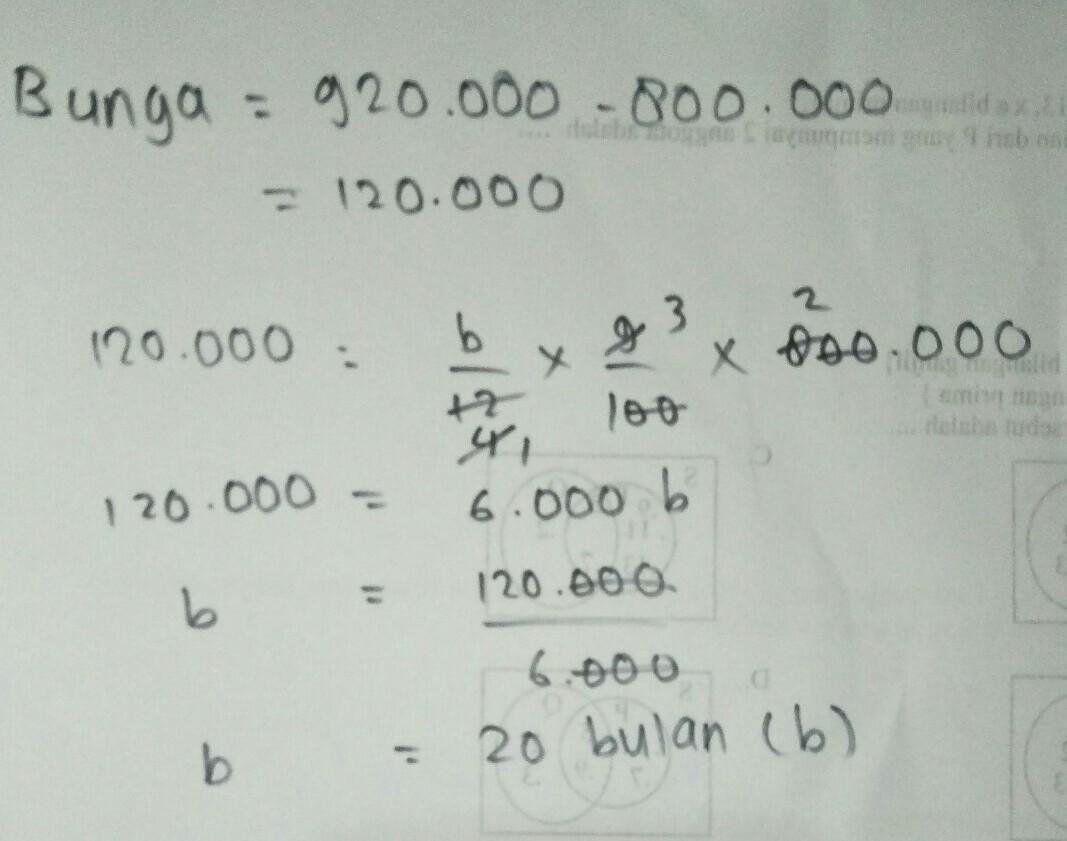 Bunga = 920.000 - 800.000
= 120.000
120.000 = b/12 4 1 × 9 3/100 × 800.000 2
120.000 = 6.000 b
b = 120.000/6.000
b = 20 bulan (b)